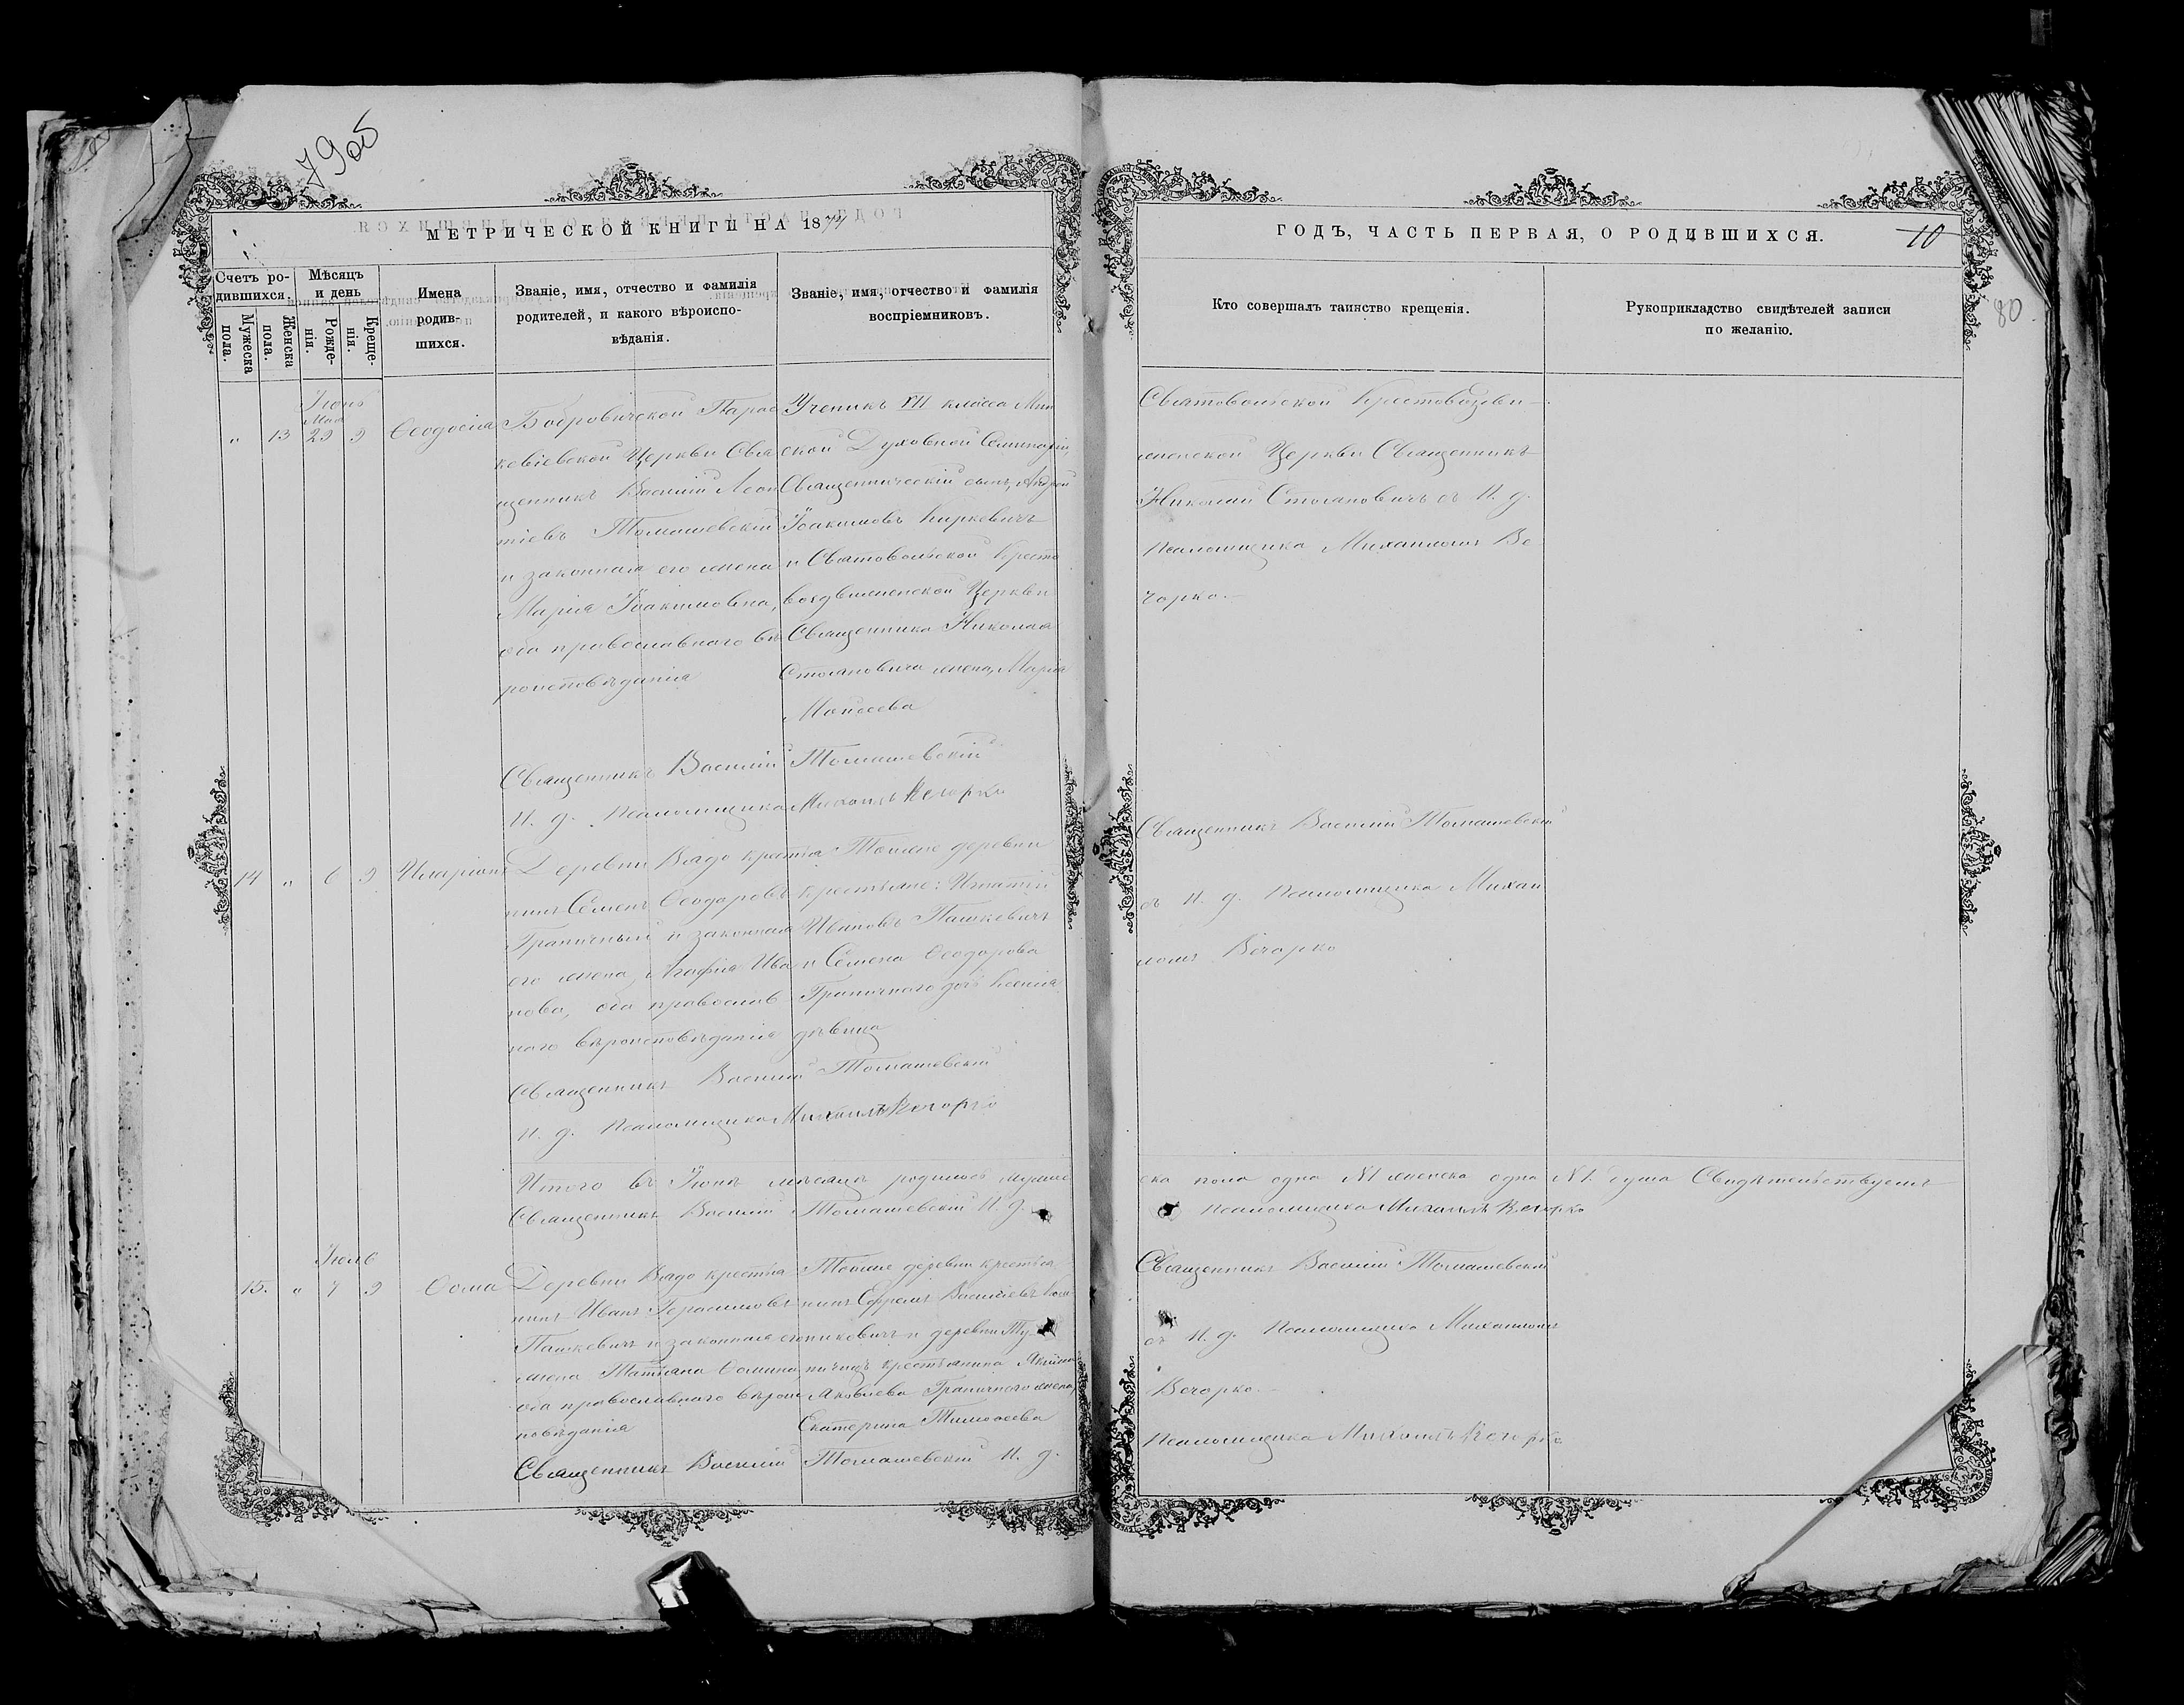 79об
МЕТРИЧЕСКОЙ КНИГИ НА 1877
Счетъ ро-
дившихся.
Мѣсяцъ
и день
Мужеска
пола.
Женска
пола.
Рожде-
нія.
Креще-
нія.
Имена
родив-
шихся.
Званіе, имя, отчество и фамилія
родителей, и какого вѣроиспо-
вѣданія.
Званіе, имя, отчество и фамилія
воспріемниковъ.
Іюнь
Мая
" 13 29 9
Ѳеодосія
Бобровичской Парас
кевіевской Церкви Свя
щенникъ Василій Леон
тіевъ Томашевскій
и законная его жена
Марія Іоакимовна,
оба православнаго вѣ
роисповѣданія
Ученикъ VII класса Мин
ской Духовной Семинаріи
Священническій сынъ, Андрей
Іоакимовъ Киркевичъ
и Святовольской Кресто
воздвиженской Церкви
Священника Николая
Стояновича жена, Марія
Моисеева
Священникъ Василій Томашевскій
И. д. Псаломщика Михаилъ Вечорко
14 " 6 9
Иларіонъ
Деревни Вядо крестья
нинъ Семенъ Ѳеодоровъ
Граничный и законная
его жена, Агафія Ива
нова, оба православ
наго вѣроисповѣданія
Тойже деревни
крестьяне: Игнатій
Ивановъ Пашкевичъ
и Семена Ѳеодорова
Граничного дочь Ксенія
дѣвица
Священникъ Василій Томашевскій
И. д. Псаломщика Михаилъ Вечорко
Итого въ Іюнѣ мѣсяцѣ родилось мужес
Священникъ Василій Томашевскій И. д.
Іюль
15. " 7 9
Ѳома
Деревни Вядо крестья
нинъ Иванъ Герасимовъ
Пашкевичъ и законная его
жена Татіана Ѳомина
оба православнаго вѣроис
повѣданія
Тойже деревни крестья
нинъ Ефремъ Васильевъ
и деревни
крестьянина
Яковлева Граничного жена,
Екатерина Тимоѳеева
Священникъ Василій Томашевскій И. д.
ГОДЪ, ЧАСТЬ ПЕРВАЯ, О РОДИВШИХСЯ.
10
80
Кто совершалъ таинство крещенія.
Рукоприкладство свидѣтелей записи
по желанію.
Святовольской Крестовоздви-
женской Церкви Священникъ
Николай Стояновичъ съ И. д.
Псаломщика Михаиломъ Ве
чорко.
Священникъ Василій Томашевскій
съ И. д. Псаломщика Михаи
ломъ Вечорко
ка пола одна №1 женска одна №1. душа Свидѣтельствуемъ
Псаломщика Михаилъ Вечорко
Священникъ Василій Томашевскій
съ И. д. Псаломщика Михаиломъ
Вечорко.
Псаломщика Михаилъ Вечорко